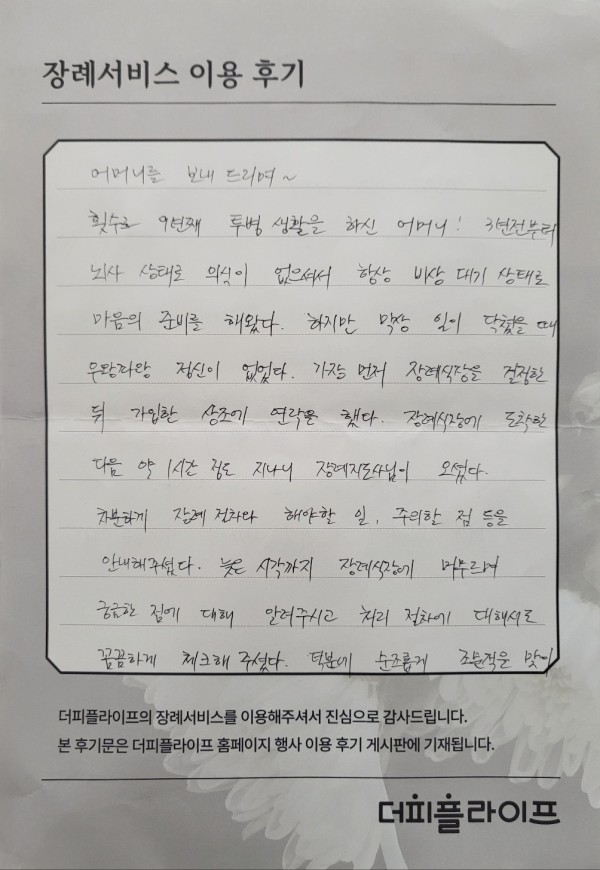 장례서비스 이용 후기
어머니를 보내 드리며~
횟수로 9년째 투병 생활을 하신 어머니! 3년전부터
뇌사 상태로 의식이 없으셔서 항상 비상 대기 상태로
마음의 준비를 해왔다. 하지만 막상 일이 닥쳤을 때
우왕좌왕 정신이 없었다. 가장 먼저 장례식장을 결정한
뒤 가입한 상조에 연락을 했다. 장례식장에 도착한
다음 약 1시간 정도 지나니 장례지도사님이 오셨다.
차분하게 장례 절차와 해야할 일, 주의할 점 등을
안내해주셨다. 늦은 시각까지 장례식장에 머무르며
궁금한 점에 대해 알려주시고 처리 절차에 대해서도
꼼꼼하게 체크해 주셨다. 덕분에 순조롭게 조문객을 맞이
더피플라이프의 장례서비스를 이용해주셔서 진심으로 감사드립니다.
본 후기문은 더피플라이프 홈페이지 행사 이용 후기 게시판에 기재됩니다.
더피플라이프